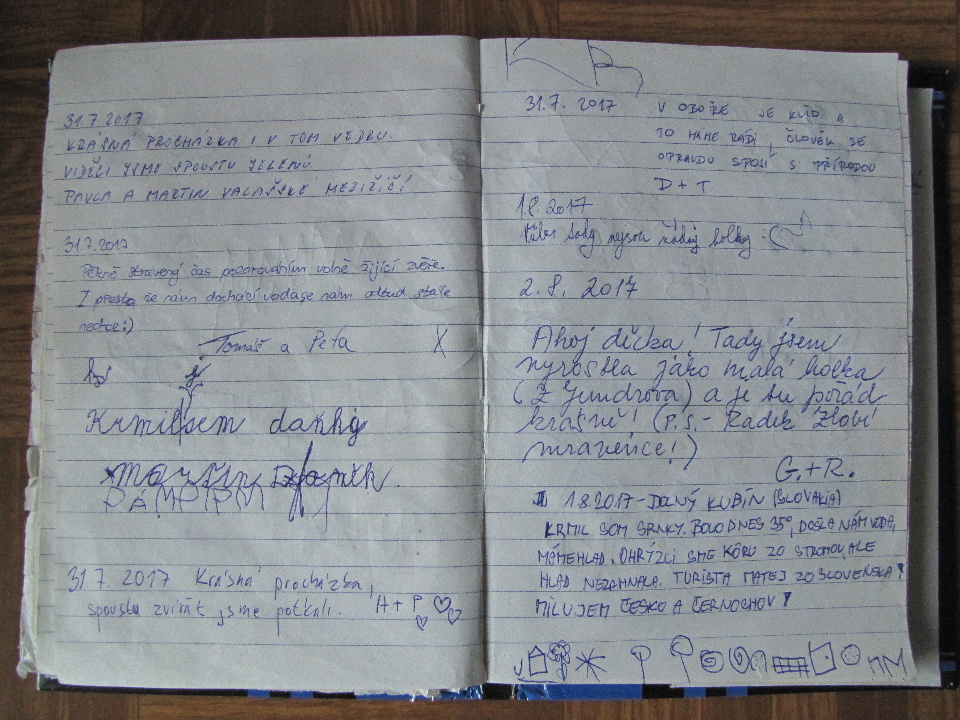 31.7 2017
KRÁSNÁ PROCHÁZKA I V TOM VEDRU.
VIDĚLI JSME SPOUSTU JELENŮ
PAVLA A MARTIN VALAŠSKÉ MEZIŘÍČÍ
31.7.2017
Pěkně strávený čas pozorováním volně žijící zvěře.
I prosto že nám dochází voda se nám odtud stále
nechce:)
Tomáš a Peťa X
Krmil jsem daňky
Martin
31.7. 2017 Krásná procházka,
spousta zvířat jsme potkali. H + P
31.7. 2017
V OBOŘE JE KLID A
TO MÁME RÁDI, ČLOVĚK SE
OPRAVDU SPOJÍ S PŘÍRODOU
D + T
1.8. 2017
tady nejsou žádný holky
2.8. 2017
Ahoj děcka! Tady jsem
vyrostla jako malá holka
(Z Jundrova) a je tu pořád
krásně! (P.S.- Radek zlobí
mravence!)
G.+R.
1.8.2017 - DOLNÝ KUBÍN (SLOVAKIA)
KŔMIL SOM SRNKY. BOLO DNES 35°, DOŠLA NÁM VODA,
MÁME HLAD. OHRÝZLI SME KÔRU ZO STROMOV, ALE
HLAD NEZAHNALA. TURISTA MATEJ ZO SLOVENSKA!
MILUJEM ČESKO A ČERNOCHOV!